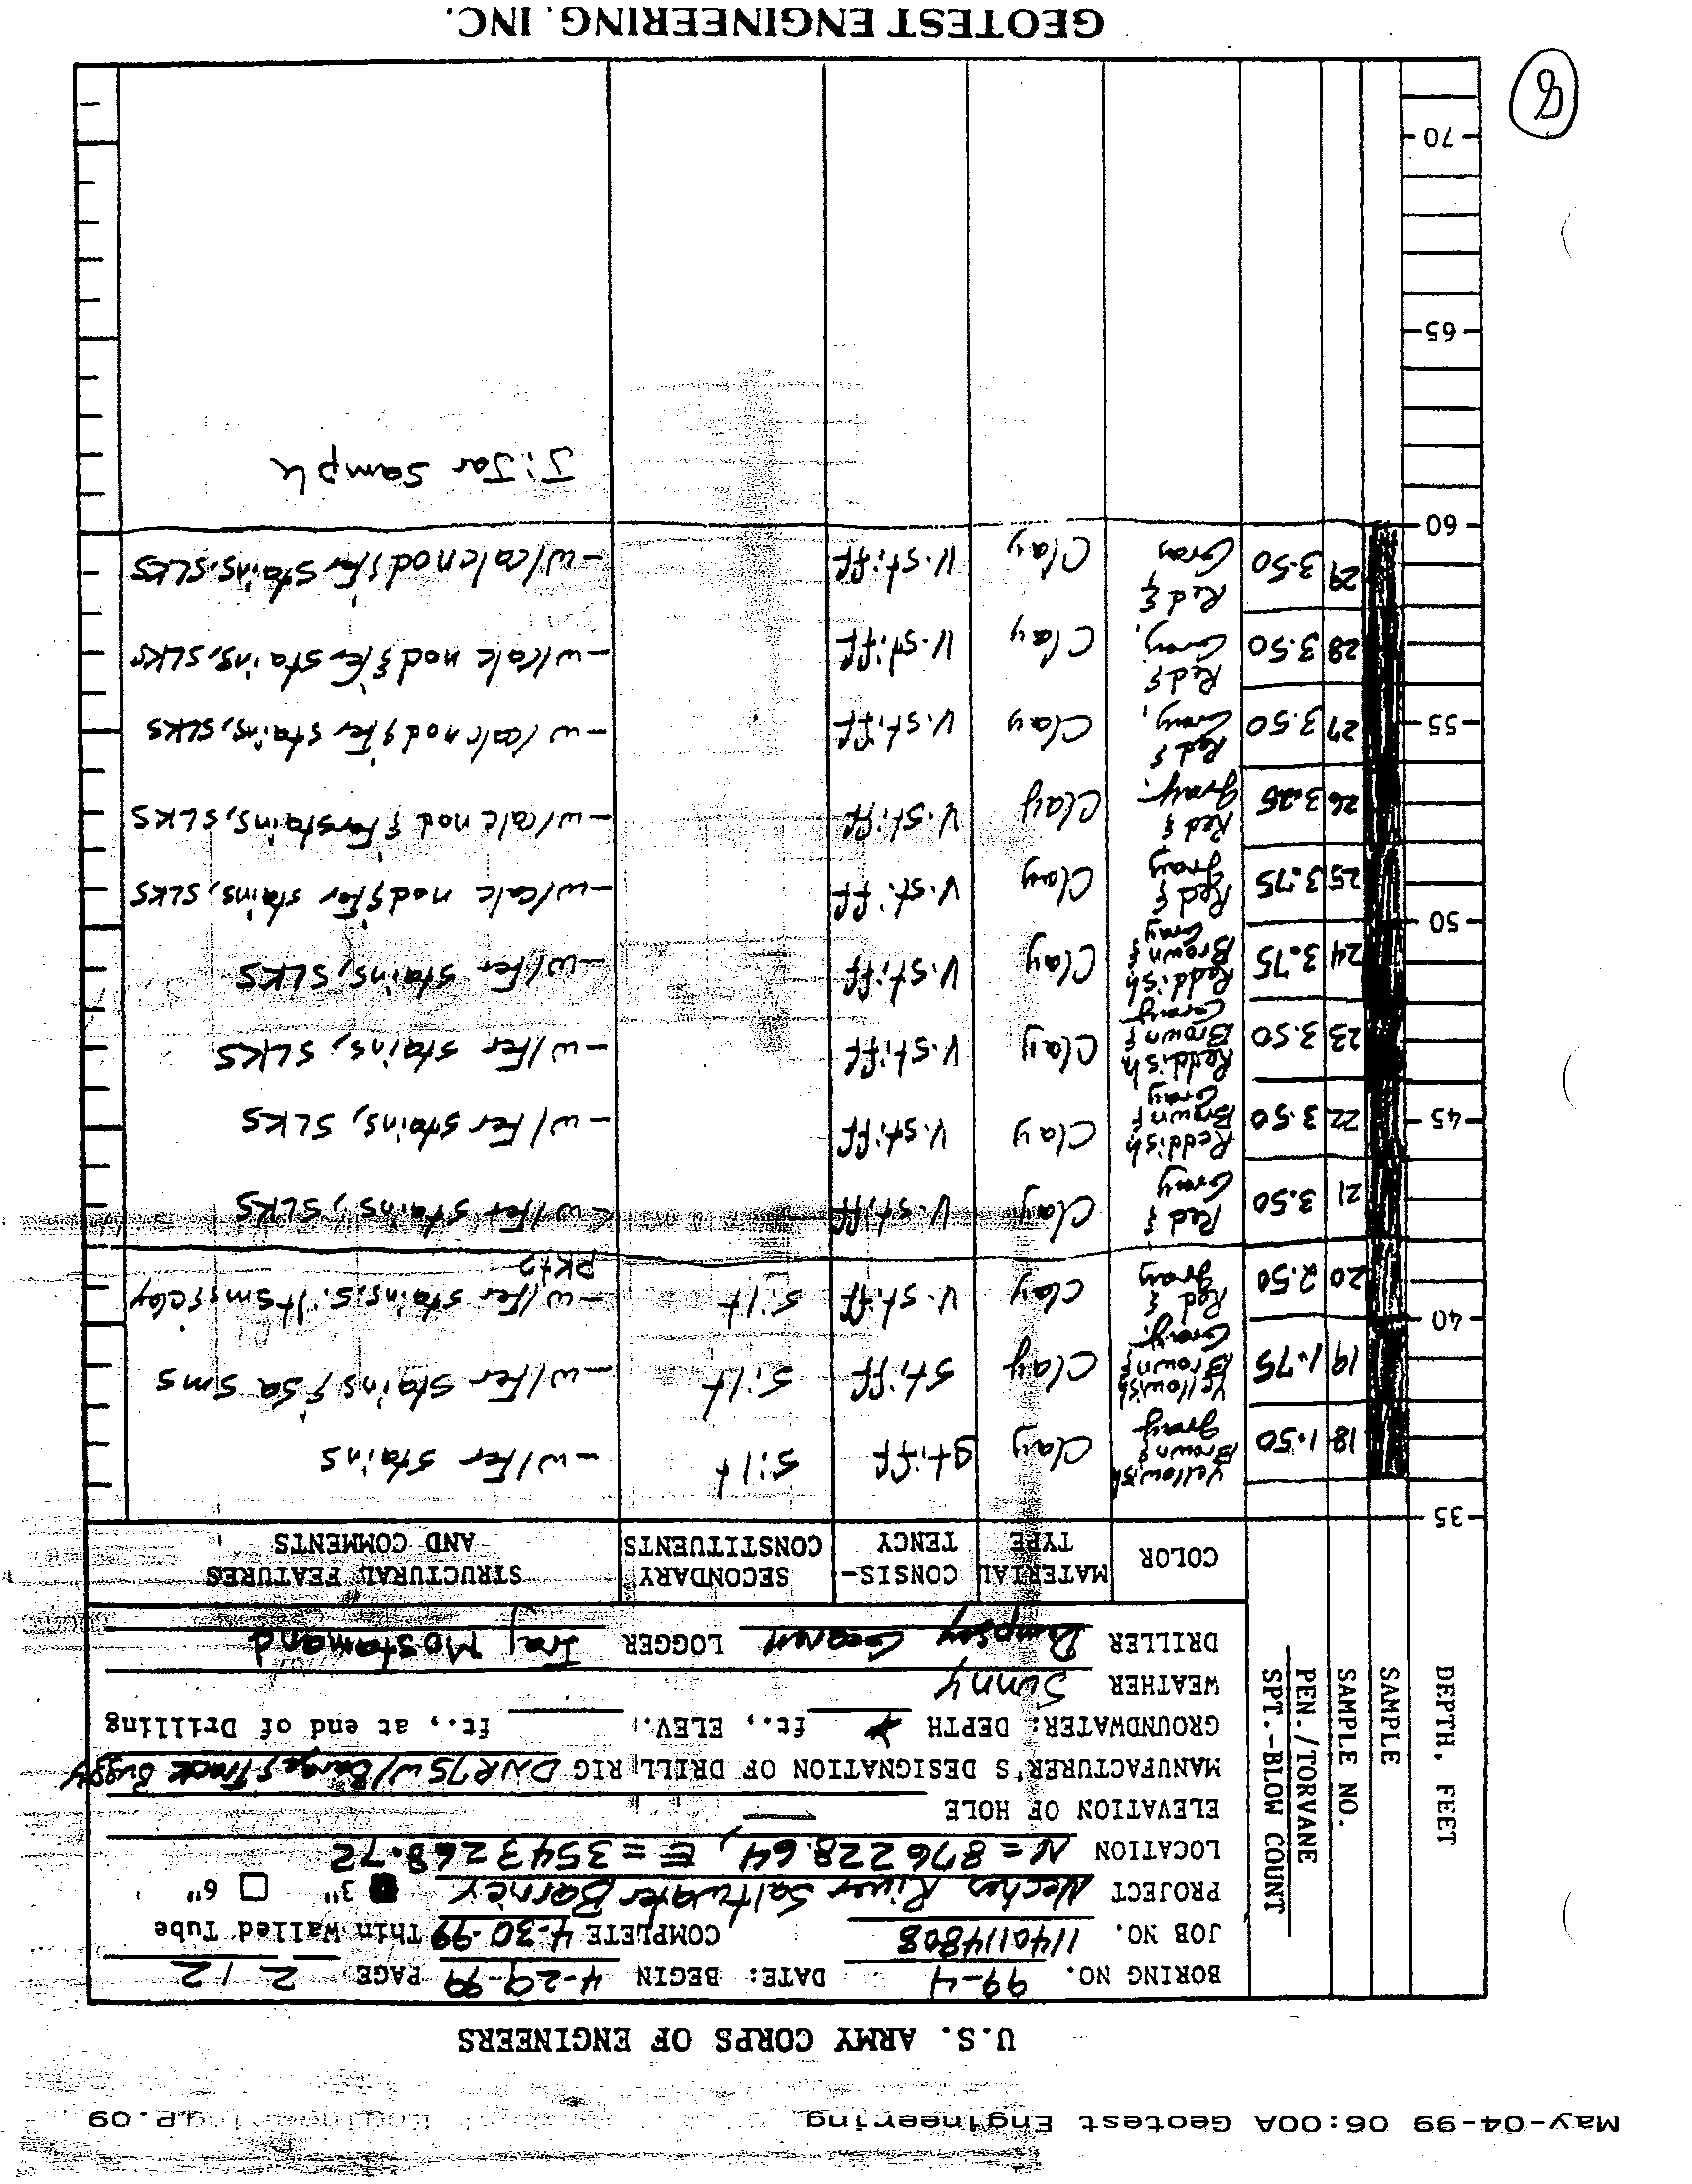 May-04-99 06:00A Geotest Engineering P.09
U.S. ARMY CORPS OF ENGINEERS
BORING NO. 99-4 DATE: BEGIN 4-29-99 PAGE 2 / 2
JOB NO. 1140114808 COMPLETE 4-30-99 Thin Walled Tube
PROJECT Neches River Saltwater Barrier 3" 6"
LOCATION N=876228.64, E=3543268.72
ELEVATION OF HOLE —
MANUFACTURER'S DESIGNATION OF DRILL RIG DNR75 w/Barge, Track Buggy
GROUNDWATER: DEPTH * ft., ELEV. ft., at end of Drilling
WEATHER Sunny
DRILLER Dempsey LOGGER Iraj Mostamand
DEPTH, FEET
SAMPLE
SAMPLE NO.
PEN./TORVANE
SPT.-BLOW COUNT
COLOR
MATERIAL TYPE
CONSIS-TENCY
SECONDARY CONSTITUENTS
STRUCTURAL FEATURES AND COMMENTS
35
18 1.50 Yellowish Brown & gray Clay Stiff Silt -w/fer stains
19 1.75 Yellowish Brown & Gray Clay Stiff Silt -w/fer stains & sa sms
40
20 2.50 Red & gray Clay V.stiff Silt -w/fer stains, silt sms & clay pkts
21 3.50 Red & Gray Clay V.stiff -w/fer stains, SLKS
45
22 3.50 Reddish Brown & Gray Clay V.stiff -w/fer stains, SLKS
23 3.50 Reddish Brown & Gray Clay V.stiff -w/fer stains, SLKS
24 3.75 Reddish Brown & Gray Clay V.stiff -w/fer stains, SLKS
50
25 3.75 Red & gray Clay V.stiff -w/calc nod & fer stains, SLKS
26 3.25 Red & gray Clay V.stiff -w/calc nod & fer stains, SLKS
55
27 3.50 Red & Gray Clay V.stiff -w/calc nod & fer stains, SLKS
28 3.50 Red & Gray Clay V.stiff -w/calc nod & fer stains, SLKS
29 3.50 Red & Gray Clay V.stiff -w/calc nod & fer stains, SLKS
60
J: Jar Sample
65
70
8
GEOTEST ENGINEERING, INC.